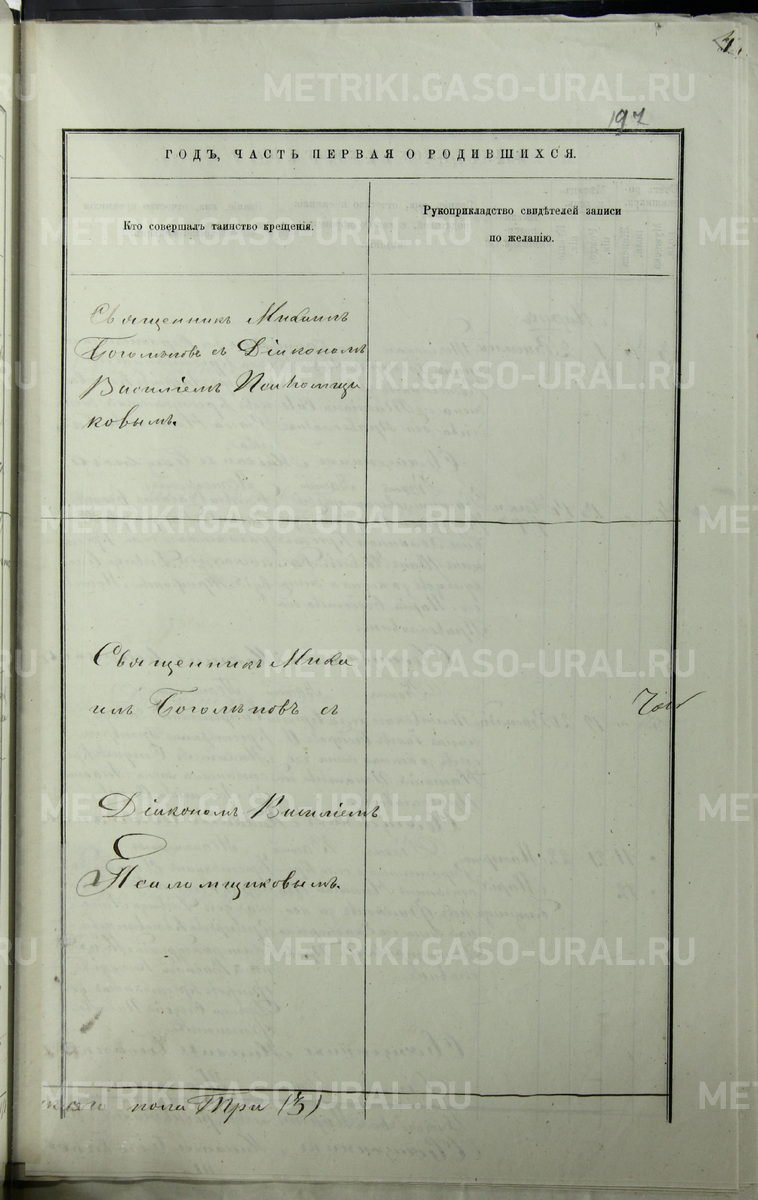 4.
197
ГОДЪ, ЧАСТЬ ПЕРВАЯ О РОДИВШИХСЯ.
Кто совершалъ таинство крещенія.
Рукоприкладство свидѣтелей записи
по желанію.
Священникъ Михаилъ
Боголѣповъ съ Діакономъ
Василіемъ
ковымъ.
Священникъ Миха
илъ Боголѣповъ съ
Діакономъ Василіемъ
Псаломщиковымъ.
пола Три (3)
METRIKI.GASO-URAL.RU